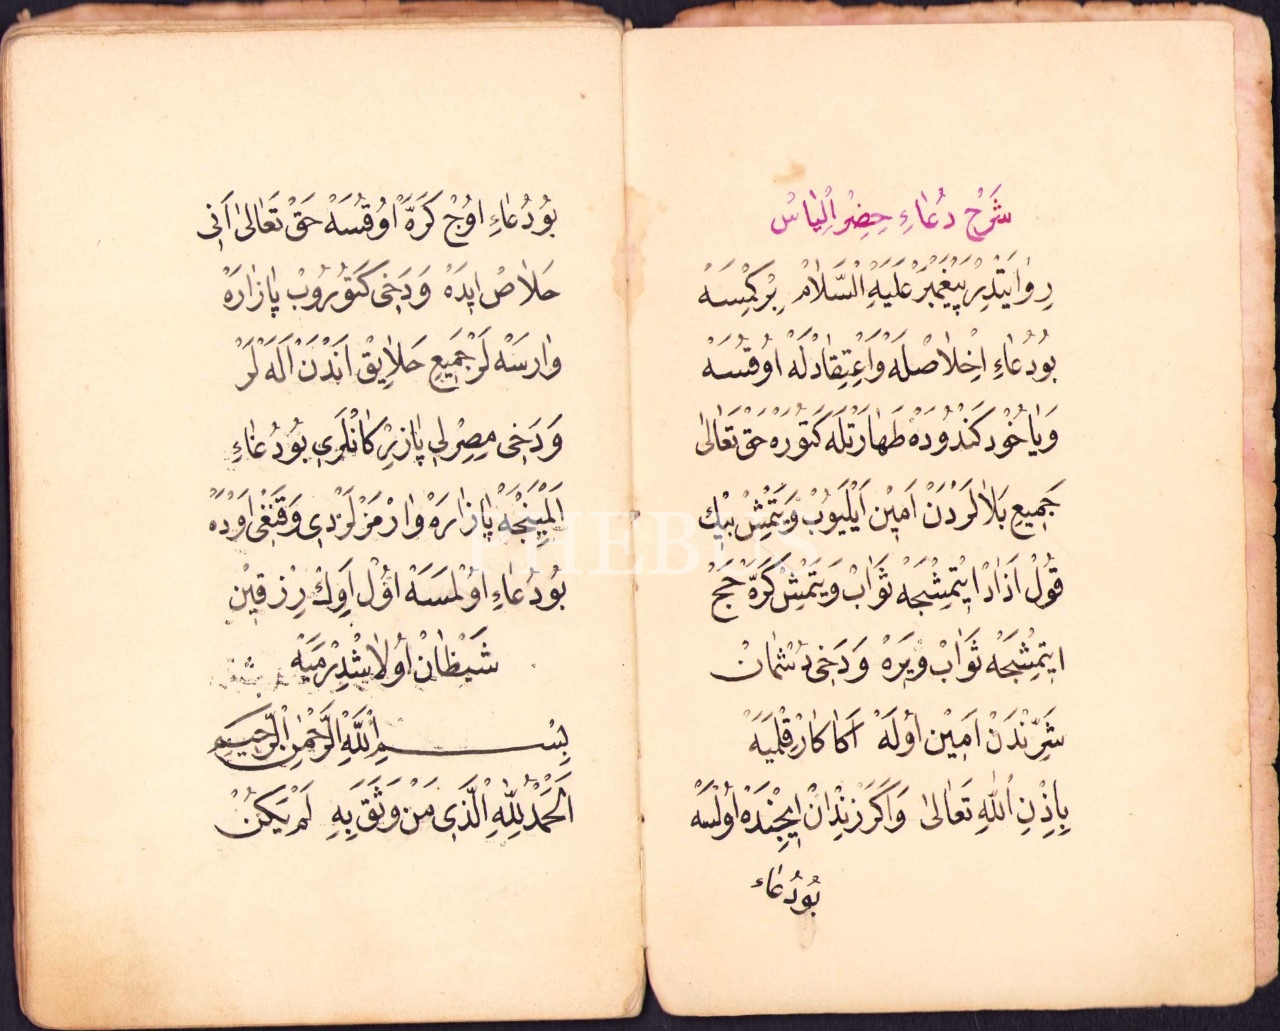 شَرْحِ دُعَاءِ حِضِرْ اِلْيَاسْ
رِوَايَتْدِرْ پَيْغَمْبَرْ عَلَيْهِ السَّلَامْ بِرْ كِمْسَهْ
بُو دُعَاءِ اِخْلَاصْلَهْ وَاعْتِقَادْلَهْ اوُقُسَهْ
وَيَاخُودْ كَنْدُودَهْ طَهَارَتْلَهْ كَتُورَهْ حَقْ تَعَالٰى
جَمِيعِ بَلَالَرْدَنْ اَمِينْ اَيْلَيوُبْ وَيَتْمِشْ بِيْكْ
قُولْ اَذَادْ اِيتْمِشْجَهْ ثَوَابْ وَيَتْمِشْ كَرَّهْ حَجْ
اِيتْمِشْجَهْ ثَوَابْ وِيرَهْ وَدَخِى دُشْمَانْ
شَرِّنْدَنْ اَمِينْ اُولَهْ اَكَا كَارْ قِلْمَيَهْ
بِاِذْنِ اللّٰهِ تَعَالٰى وَاَكَرْ زِنْدَانْ اِيچِنْدَهْ اُولْسَهْ
بُو دُعَاء
بُو دُعَاءِ اوُچْ كَرَّهْ اوُقُسَهْ حَقْ تَعَالٰى اَنِى
خَلَاصْ اِيدَهْ وَدَخِى كَتُورُوبْ پَازَارَهْ
وَارْسَهْلَرْ جَمِيعِ خَلَايِقْ اَنْدَنْ اَلَهْلَرْ
وَدَخِى مِصِرْلِى پَازِرْكَانْلَرِى بُو دُعَاءِ
اَلْمَيِنْجَهْ پَازَارَهْ وَارْمَزْلَرْدِى وَقَنْغِى اَوْدَهْ
بُو دُعَاءِ اوُلْمَسَهْ اوُلْ اَوِكْ رِزْقِينْ
شَيْطَانْ اُولَاشْدِرْمَيَهْ
بِسْمِ اللّٰهِ الرَّحْمٰنِ الرَّحِيمِ
اَلْحَمْدُ لِلّٰهِ الَّذِى مَنْ وَثَقَ بِهِ لَمْ يَكُنْ
PHEBUS